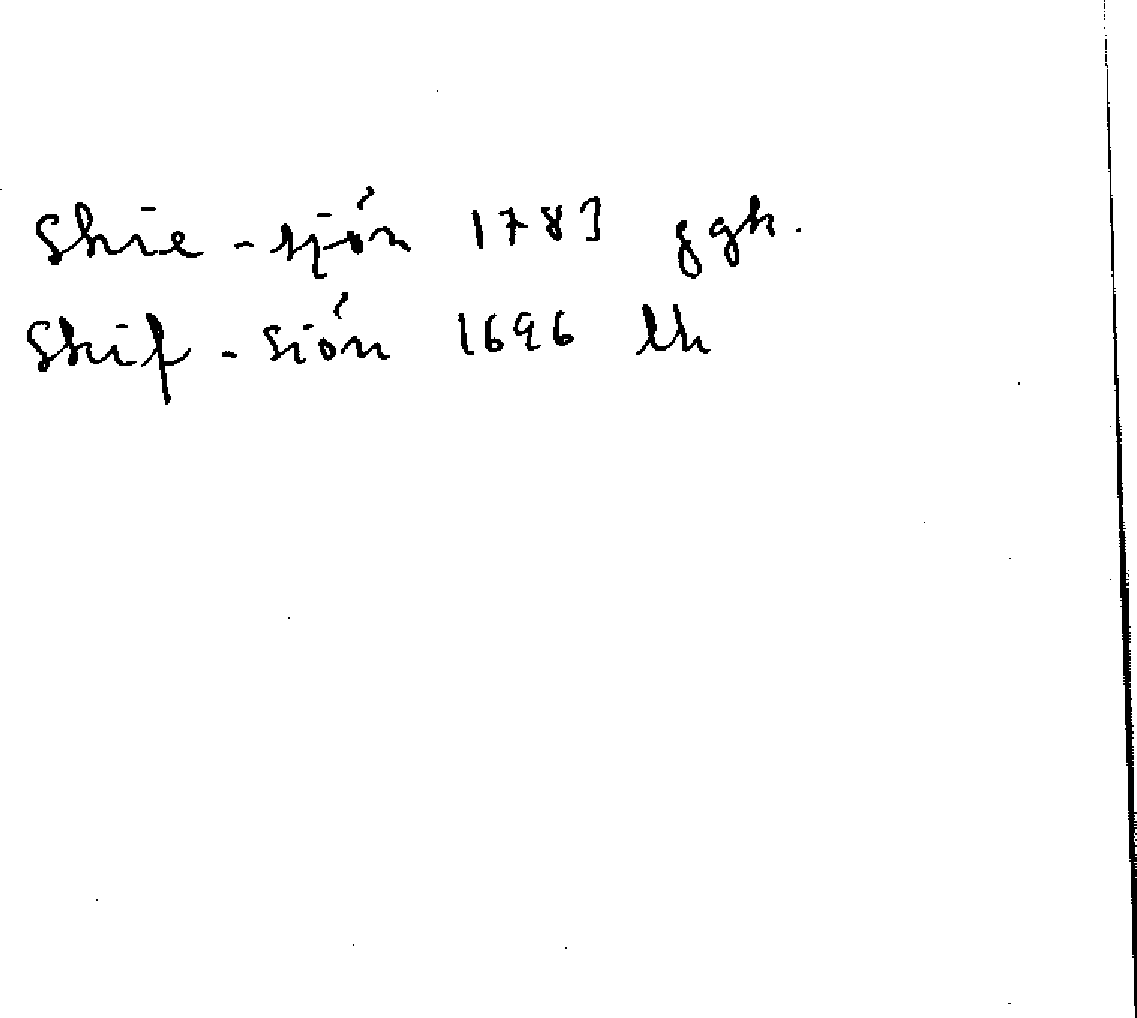 Skie-sjón 1783 ggk.
Skif-sión 1696 lk